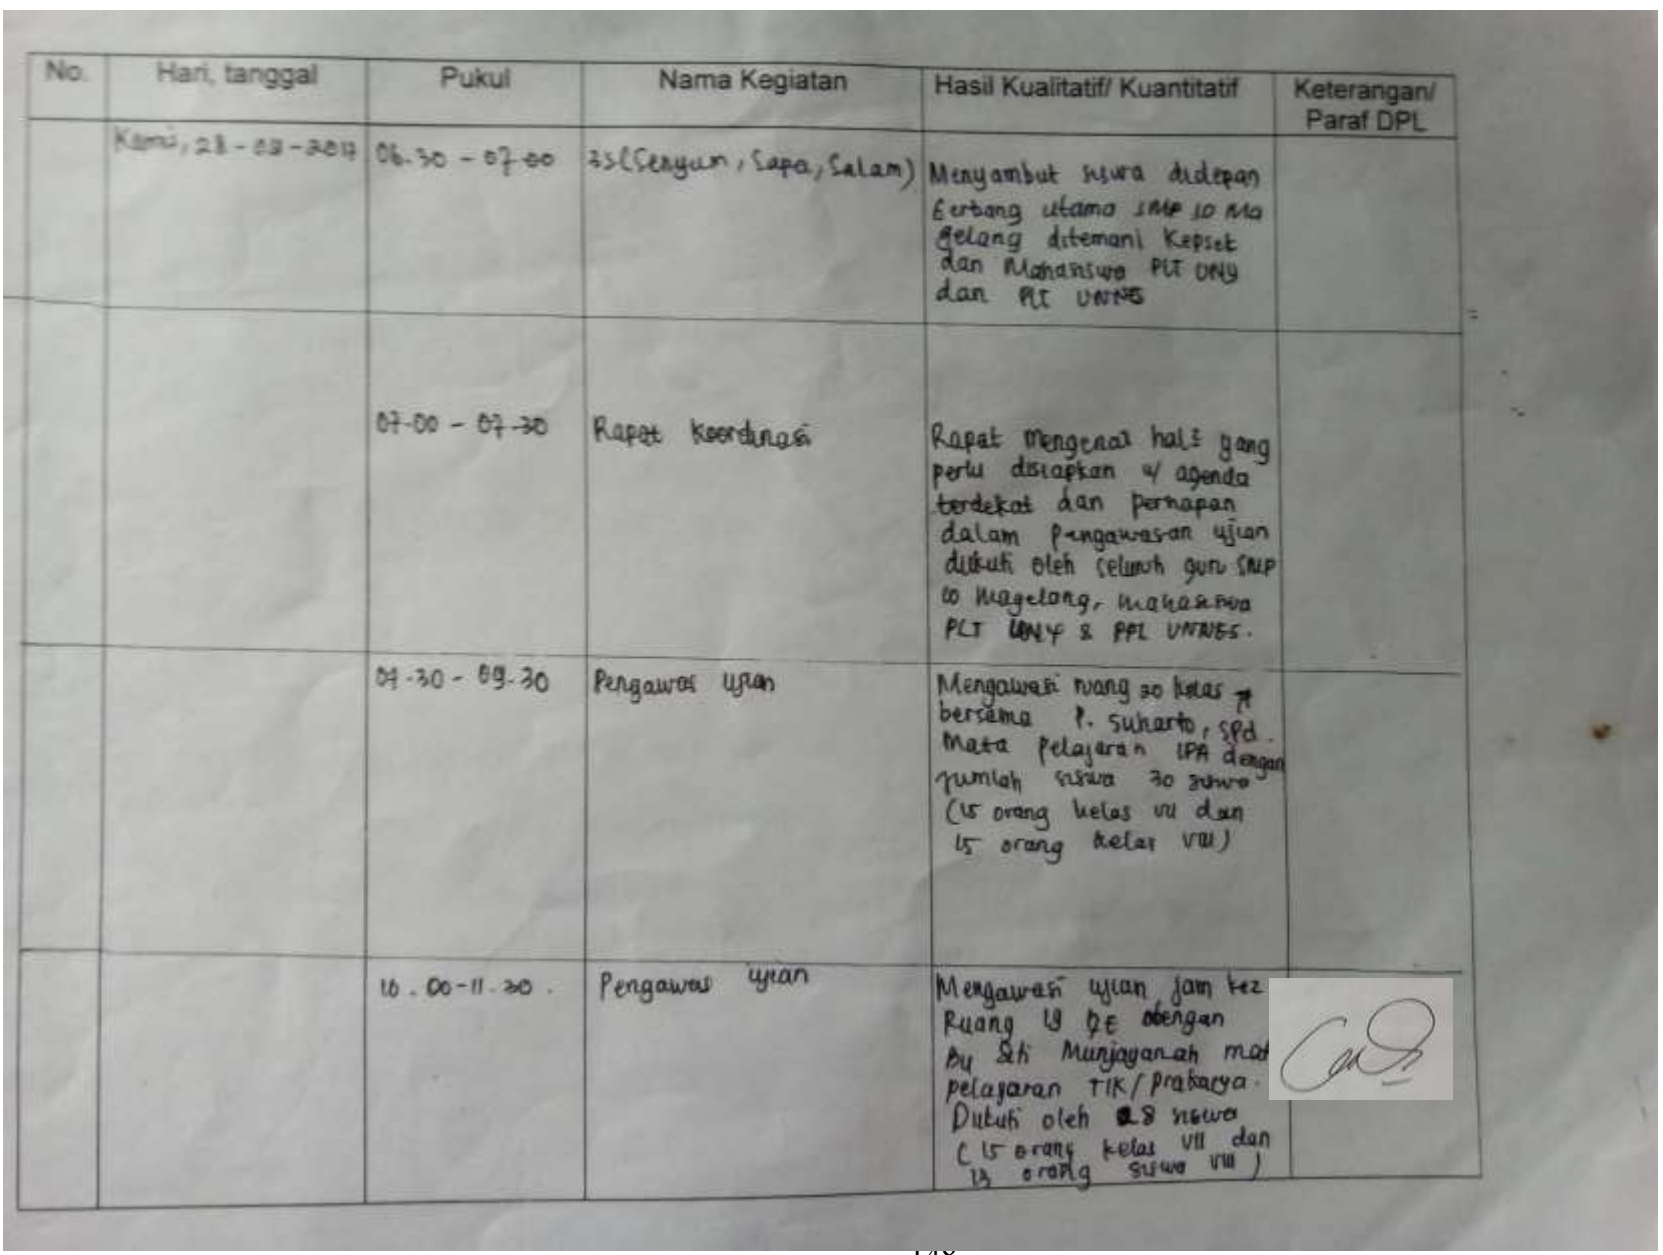 No. Hari, tanggal Pukul Nama Kegiatan Hasil Kualitatif/ Kuantitatif Keterangan/
Paraf DPL
Kamis, 28-09-2017 06.30 - 07-00 3S (Senyum, Sapa, Salam) Menyambut siswa didepan
Gerbang utama SMP 10 Ma
gelang ditemani Kepsek
dan Mahasiswa PLT UNY
dan PLT UNNES
07-00 - 07-30 Rapat Koordinasi Rapat mengenai hal² yang
perlu disiapkan u/ agenda
terdekat dan persiapan
dalam pengawasan ujian
diikuti oleh seluruh guru SMP
10 Magelang, mahasiswa
PLT UNY & PPL UNNES.
07-30 - 09-30 Pengawas ujian Mengawasi ruang 20 kelas
bersama P. Suharto, SPd.
Mata pelajaran IPA dengan
jumlah siswa 30 siswa
(15 orang kelas VII dan
15 orang kelas VIII)
10.00-11.30. Pengawas ujian Mengawasi ujian jam ke2
Ruang 19 dengan
Bu Siti Munjayanah mat
pelajaran TIK/Prakarya.
Diikuti oleh 28 siswa
(15 orang kelas VII dan
13 orang siswa VIII)